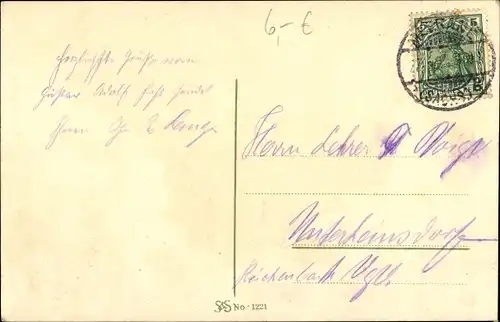 6,- €
Herzlichste Grüße vom
Gustav Adolf Fest sendet
Ihnen Ihr
Herrn Lehrer Voigt
Unterheinsdorf
Reichenbach Vgtl.
S&S No. 1221
5
5